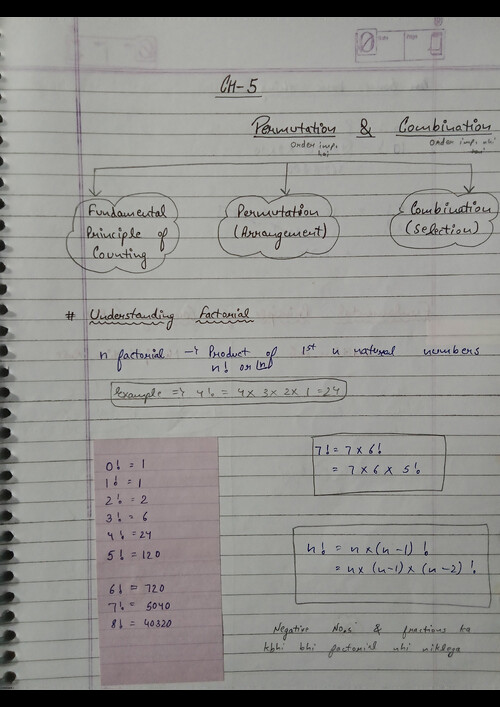 Date Page
CH-5
Permutation & Combination
Order imp. hai
Order imp. nhi hai
Fundamental Principle of Counting
Permutation (Arrangement)
Combination (Selection)
# Understanding Factorial
n factorial → Product of 1st n natural numbers
n! or ⌊n
Example ⇒ 4! = 4 x 3 x 2 x 1 = 24
0! = 1
1! = 1
2! = 2
3! = 6
4! = 24
5! = 120
6! = 720
7! = 5040
8! = 40320
7! = 7 x 6!
= 7 x 6 x 5!
n! = n x (n-1) !
= n x (n-1) x (n-2) !
Negative No.s & fractions ka
kbhi bhi factorial nhi niklega